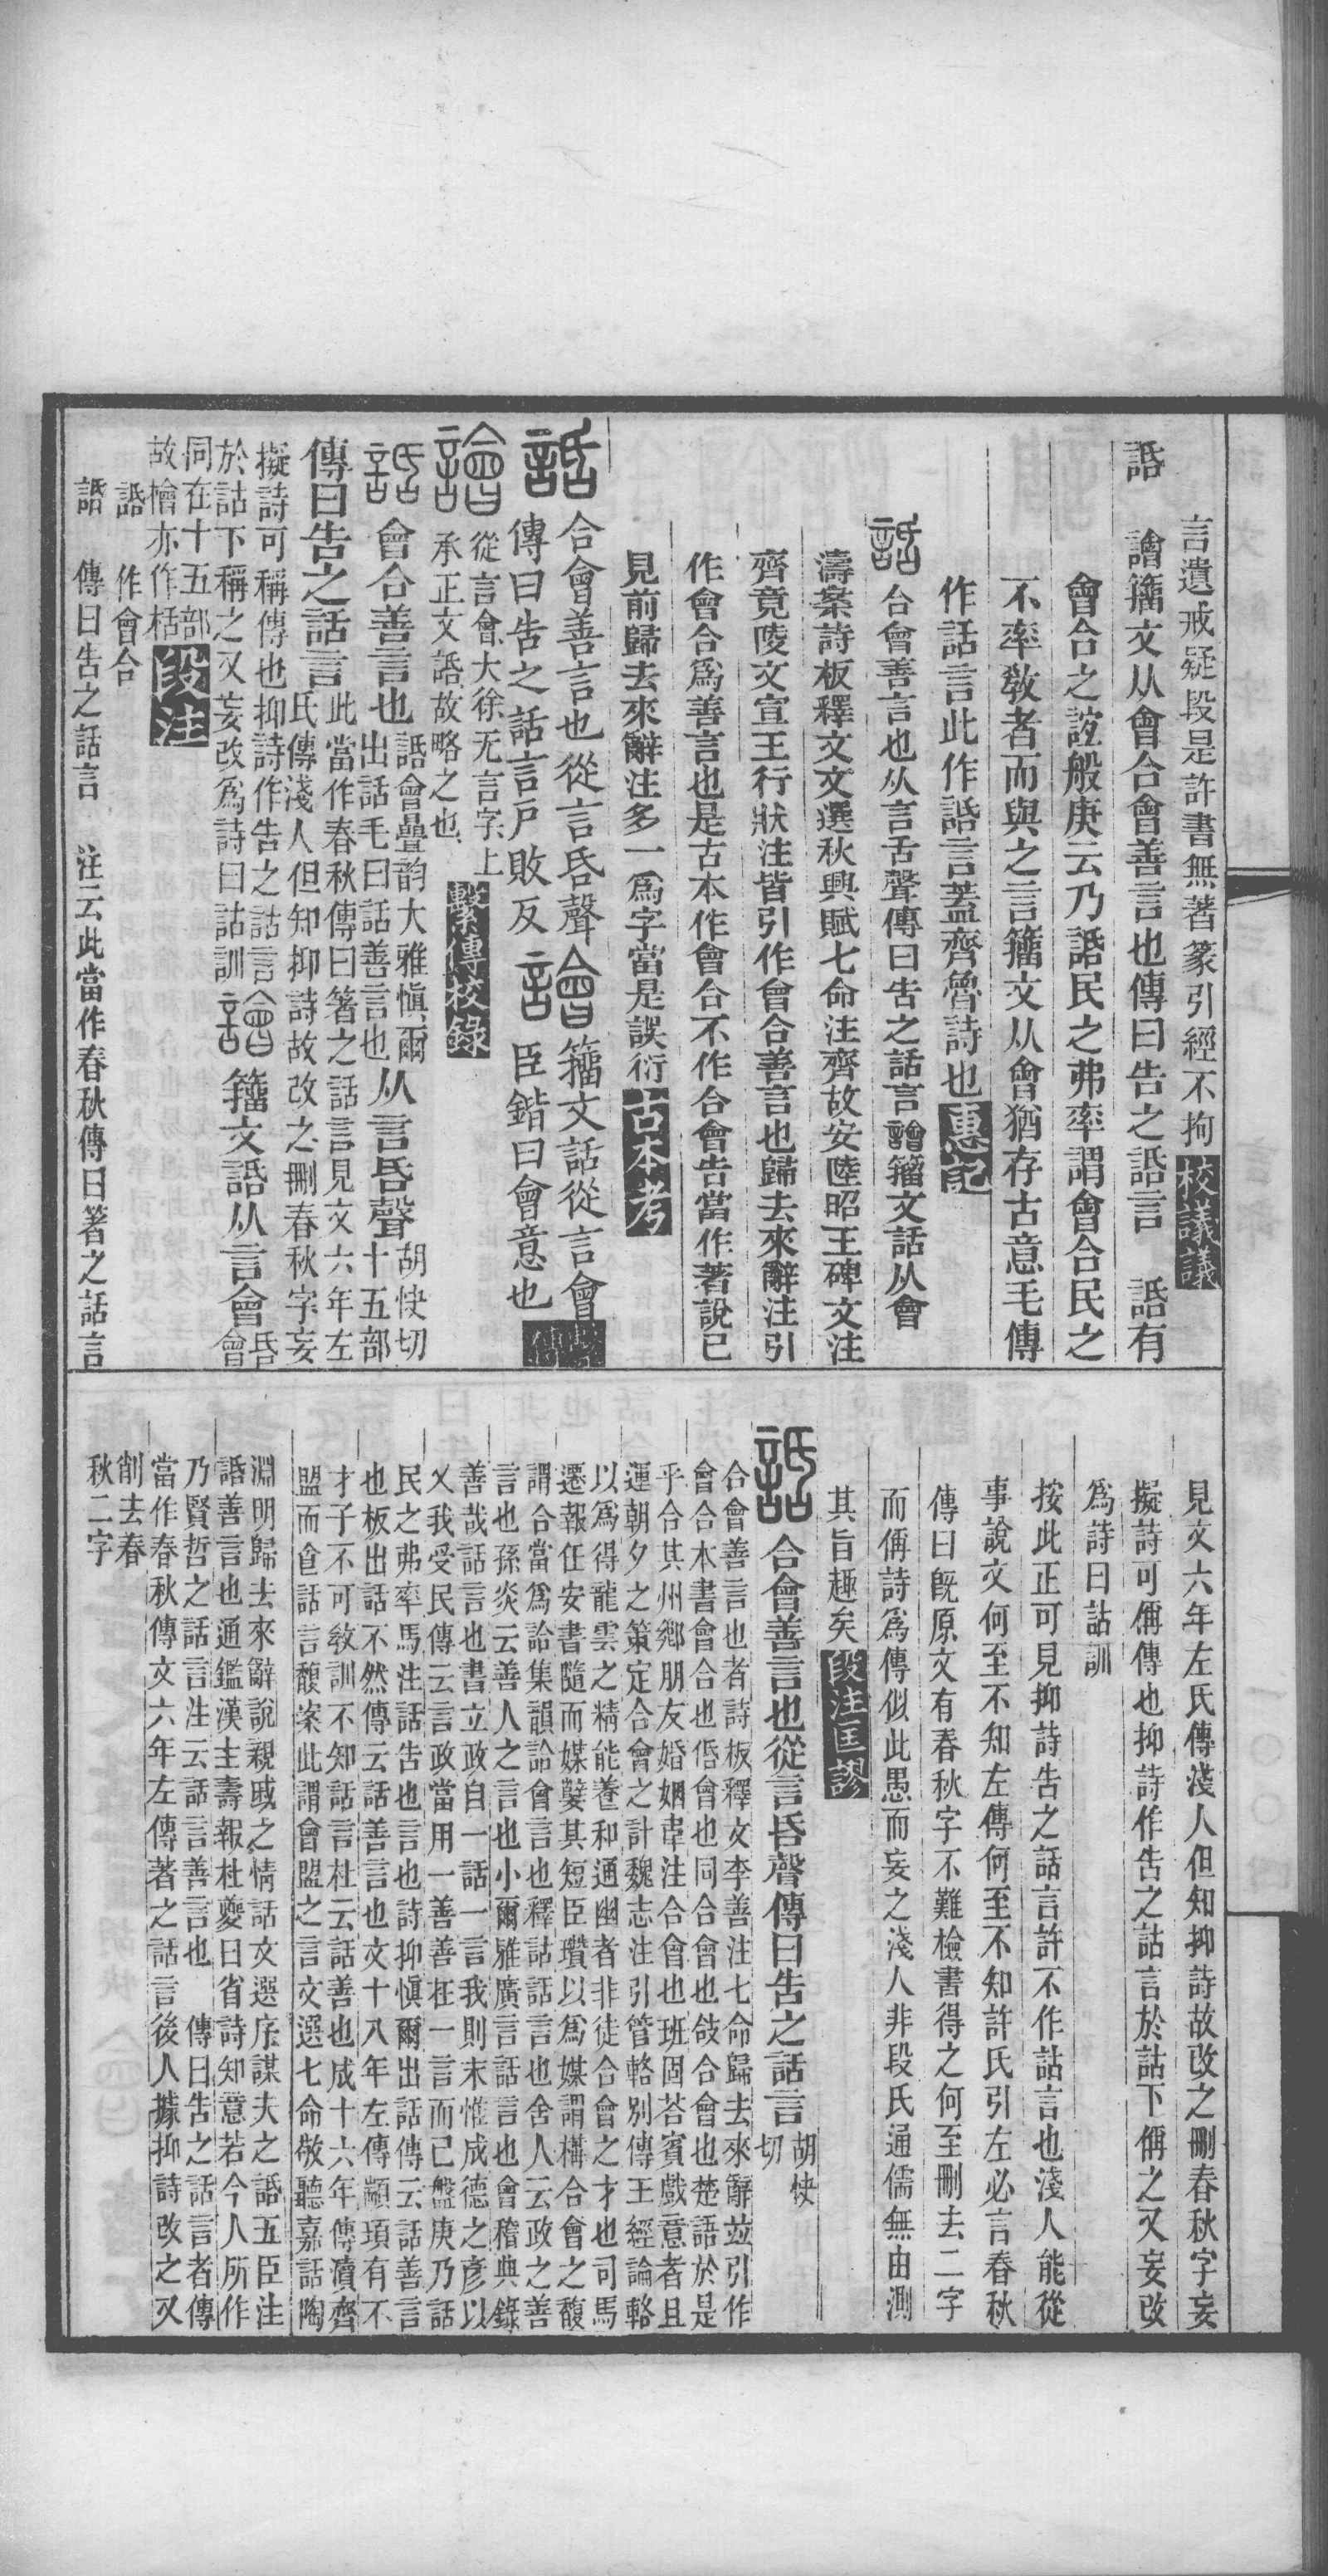 言遺戒疑段是許書無著篆引經不拘校議議
䛡 譮籒文从會合會善言也傳曰告之䛡言 䛡有
會合之誼般庚云乃䛡民之弗率謂會合民之
不率敎者而與之言籒文从會猶存古意毛傳
作話言此作䛡言蓋齊魯詩也惠記
䛡合會善言也从言舌聲傳曰告之話言譮籒文話从會
濤案詩板釋文文選秋興賦七命注齊故安陸昭王碑文注
齊竟陵文宣王行狀注皆引作會合善言也歸去來辭注引
作會合爲善言也是古本作會合不作合會告當作著說已
見前歸去來辭注多一爲字當是誤衍古本考
䛡合會善言也從言𠯑聲譮籒文話從言會
傳曰告之話言戶敗反 臣鍇曰會意也繫傳
譮從言會大徐无言字上
承正文䛡故略之也繫傳校錄
䛡會合善言也䛡會疊韵大雅愼爾
出話毛曰話善言也从言𠯑聲胡快切
十五部
傳曰告之話言此當作春秋傳曰箸之話言見文六年左
氏傳淺人但知抑詩故改之刪春秋字妄
擬詩可稱傳也抑詩作告之詁言
於詁下稱之又妄改爲詩曰詁訓譮籒文䛡从言會𠯑
會
同在十五部
故檜亦作栝段注
䛡 作會合
䛡 傳曰告之話言 注云此當作春秋傳曰箸之話言
見文六年左氏傳淺人但知抑詩故改之刪春秋字妄
擬詩可偁傳也抑詩作告之詁言於詁下偁之又妄改
爲詩曰詁訓
按此正可見抑詩告之話言許不作詁言也淺人能從
事說文何至不知左傳何至不知許氏引左必言春秋
傳曰旣原文有春秋字不難檢書得之何至刪去二字
而偁詩爲傳似此愚而妄之淺人非段氏通儒無由測
其旨趣矣段注匡謬
䛡合會善言也從言𠯑聲傳曰告之話言胡快
切
合會善言也者詩板釋文李善注七命歸去來辭竝引作
會合本書會合也佸會也同合會也敆合會也楚語於是
乎合其州鄉朋友婚姻韋注合會也班固荅賓戲意者且
運朝夕之策定合會之計魏志注引管輅別傳王經論輅
以爲得龍雲之精能養和通幽者非徒合會之才也司馬
遷報任安書隨而媒孼其短臣瓚以爲媒謂構合會之馥
謂合當爲詥集韻詥會言也釋詁話言也舍人云政之善
言也孫炎云善人之言也小爾雅廣言話言也會稽典錄
善哉話言也書立政自一話一言我則末惟成德之彥以
乂我受民傳云言政當用一善善在一言而已盤庚乃話
民之弗率馬注話告也言也詩抑愼爾出話傳云話善言
也板出話不然傳云話善言也文十八年左傳顓頊有不
才子不可敎訓不知話言杜云話善也成十六年傳瀆齊
盟而食話言馥案此謂會盟之言文選七命敬聽嘉話陶
淵明歸去來辭說親戚之情話文選序謀夫之䛡五臣注
䛡善言也通鑑漢主壽報杜夔曰省詩知意若今人所作
乃賢哲之話言注云話言善言也 傳曰告之話言者傳
當作春秋傳文六年左傳著之話言後人據抑詩改之又
削去春
秋二字